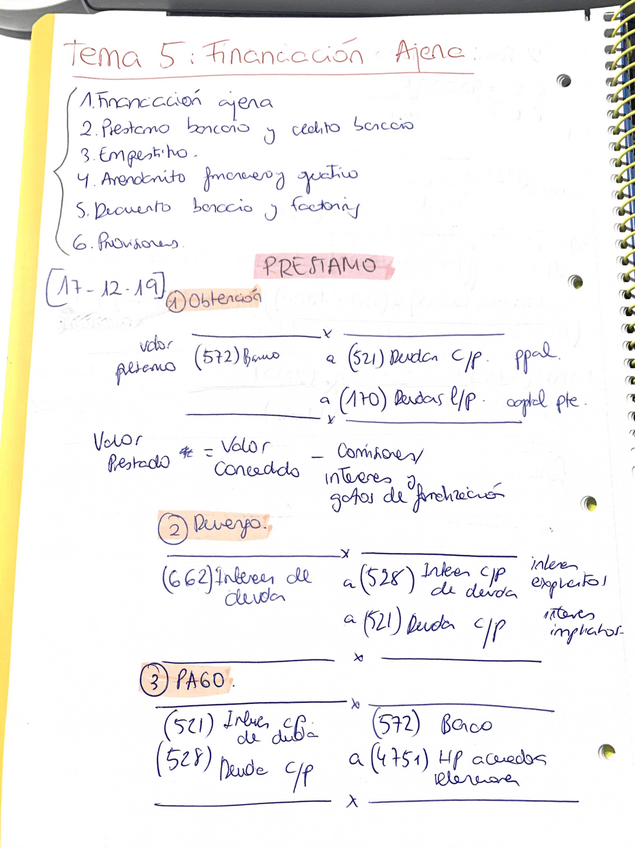 Tema 5: Financiación Ajena:
1. Financiación ajena
2. Préstamo bancario y crédito bancario
3. Empréstito.
4. Arrendmito financiero y
5. Decuento bancario y factoring
6. Provisiones.
PRESTAMO
[17-12-19]
① Obtención
x
valor préstamo (572) Banco a (521) Deudas c/p. ppal.
a (170) Deudas l/p. capital pte.
x
Valor Prestado = Valor Concedido - Comisiones
intereses y
gatos de
② Devengo.
x
(662) Intereses de deuda a (528) Interes c/p de deuda interes
a (521) Deuda c/p interes
x
③ PAGO.
x
(521) Interes c/p. de (572) Banco
(528) Deuda c/p a (4751) HP
x